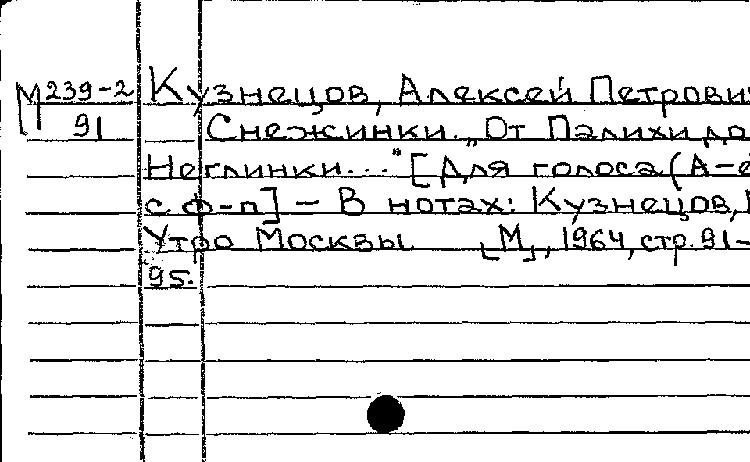 М 239-2 Кузнецов, Алексей Петрови
91 Снежинки. „От Палихи до
Неглинки..." [Для голоса (А-е
с ф-п] – В нотах: Кузнецов,
Утро Москвы [М], 1964, стр. 91-
95.